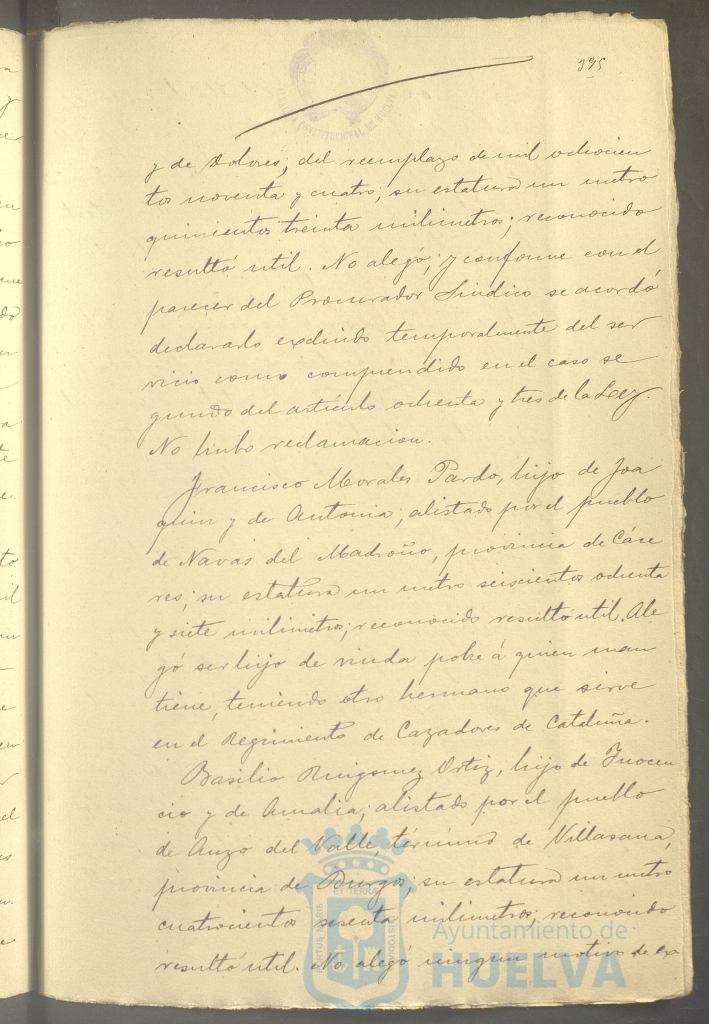 395
y de Dolores, del reemplazo de mil ochocien
tos noventa y cuatro; su estatura un metro
quinientos treinta milimetros; reconocido
resultó util. No alegó; y conforme con el
parecer del Procurador Sindico se acordó
declararlo excluido temporalmente del ser
vicio como comprendido en el caso se
gundo del articulo ochenta y tres de la Ley.
No hubo reclamacion.
Francisco Morales Pardo, hijo de Joa
quin y de Antonia; alistado por el pueblo
de Navas del Madroño, provincia de Cáce
res; su estatura un metro seiscientos ochenta
y siete milimetros; reconocido resultó util. Ale
gó ser hijo de viuda pobre á quien man
tiene, teniendo otro hermano que sirve
en el Regimiento de Cazadores de Cataluña.
Basilio Ruigomez Ortiz, hijo de Inocen
cio y de Amalia; alistado por el pueblo
de Anzo del Valle, término de Villasana,
provincia de Burgos; su estatura un metro
cuatrocientos sesenta milimetros; reconocido
resultó util. No alegó ningun motivo de ex
Ayuntamiento de
HUELVA